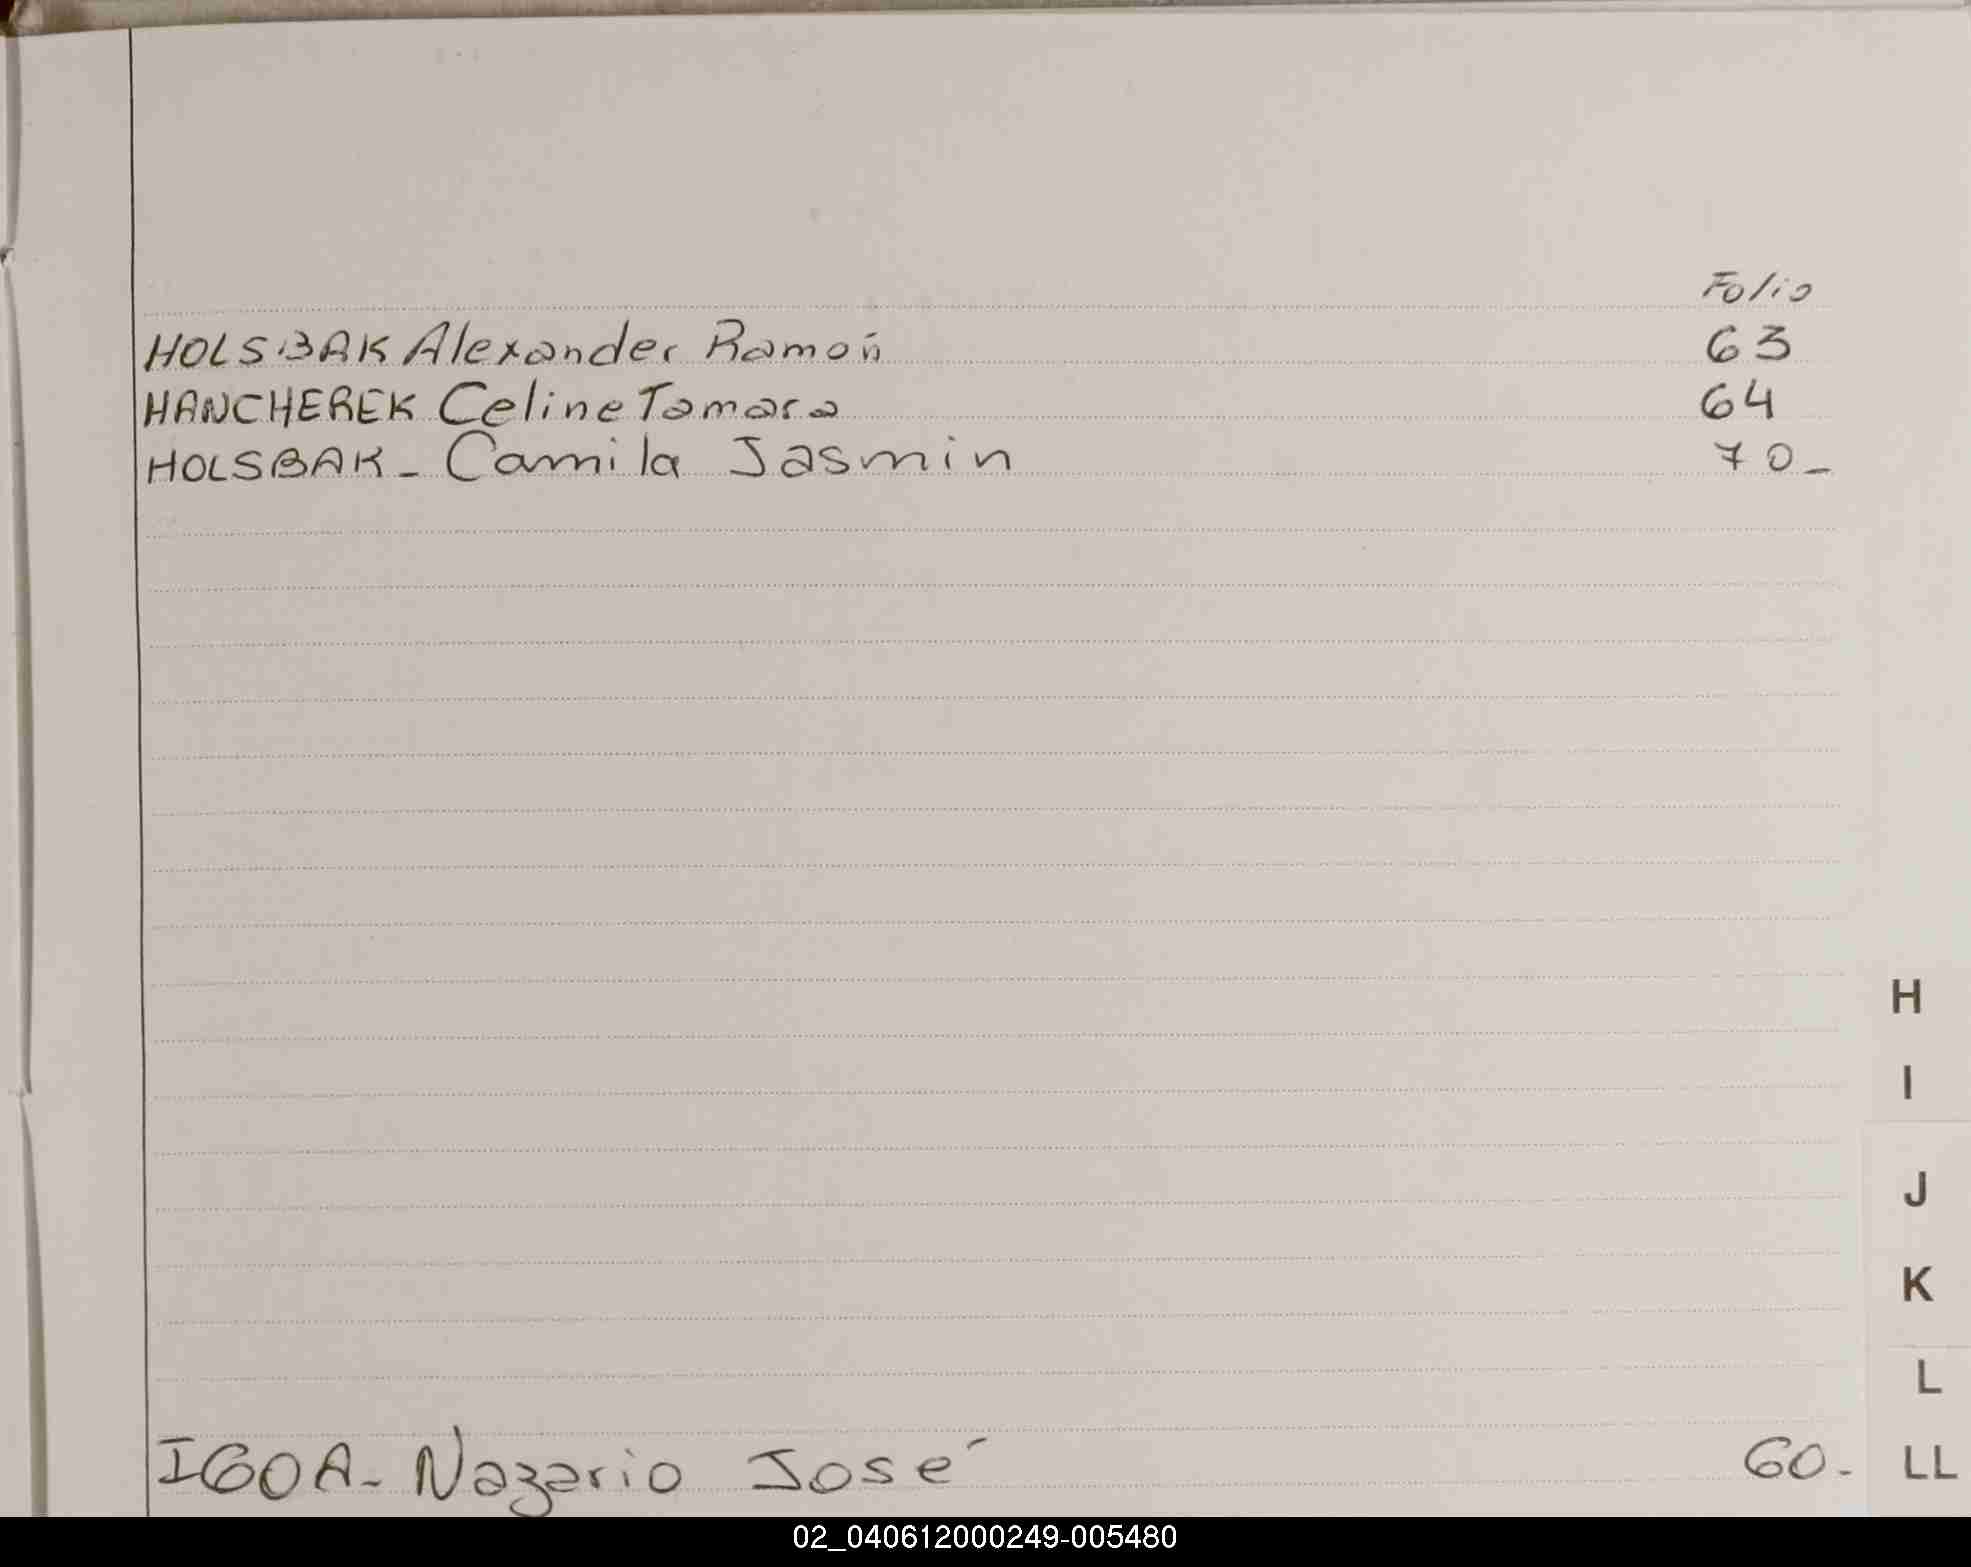 Folio
HOLSBAK Alexander Ramón 63
HANCHEREK Celine Tamara 64
HOLSBAK - Camila Jasmin 70 -
H
I
J
K
L
IGOA - Nazario José 60 - LL
02_040612000249-005480